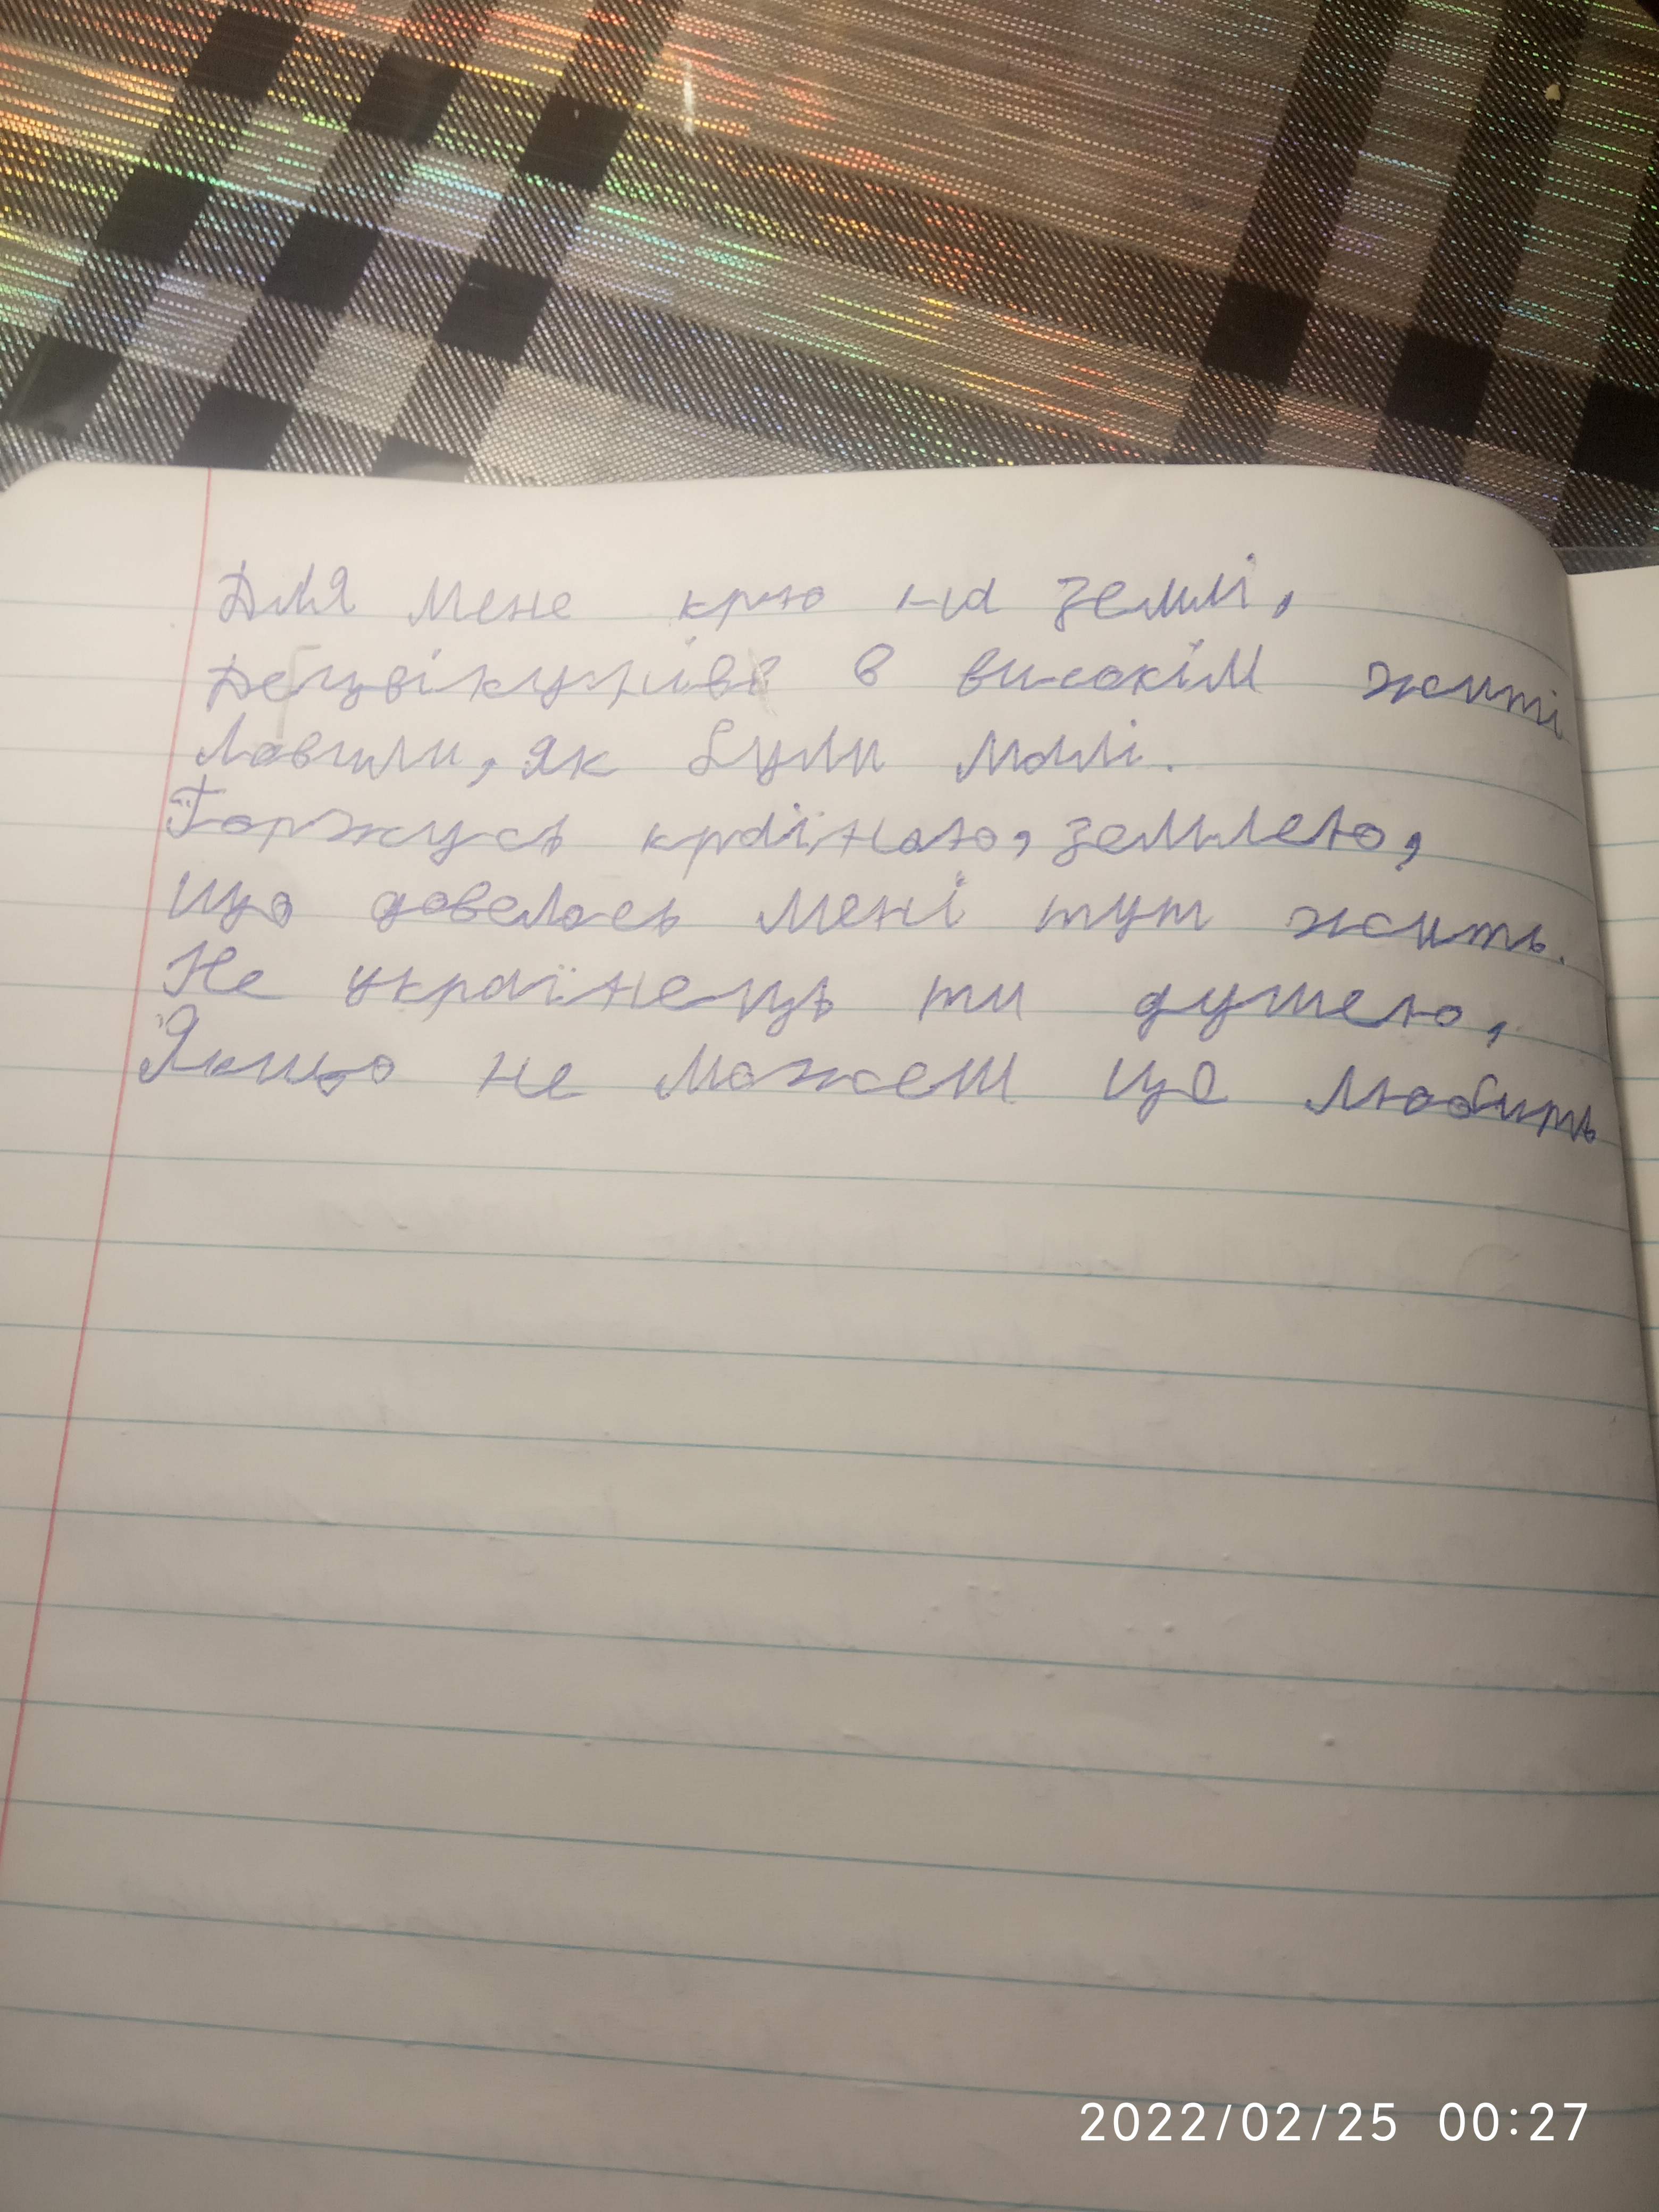 Для мене краю на землі,
Де цвікунів в високім житі
Ловили, як були малі.
Горжусь країною, землею,
Що довелось мені тут жить.
Не українець ти душею,
Якщо не можеш це любить
2022/02/25 00:27